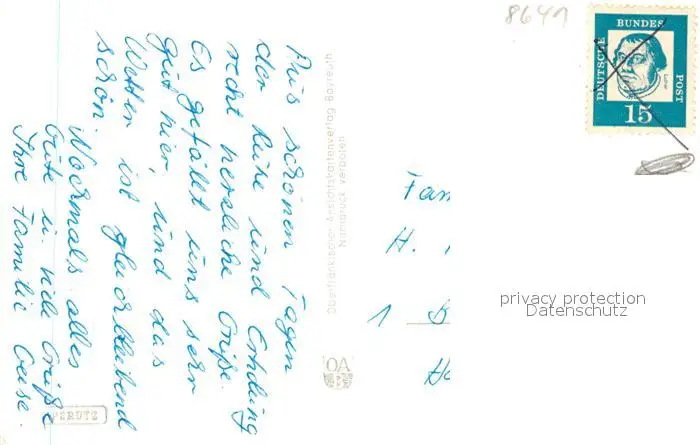 8641
DEUTSCHE
BUNDES
POST
Luther
15
Aus schönen Tagen
der Ruhe und Erholung
recht herzliche Grüße.
Es gefällt uns sehr
gut hier, und das
Wetter ist gleichbleibend
schön.
Nochmals alles
Gute u. viele Grüße
Ihre Familie
Oberfränkischer Ansichtskartenverlag Bayreuth
Nachdruck verboten
OAV
PERUTZ
Fam
H.
1 B
privacy protection
Datenschutz